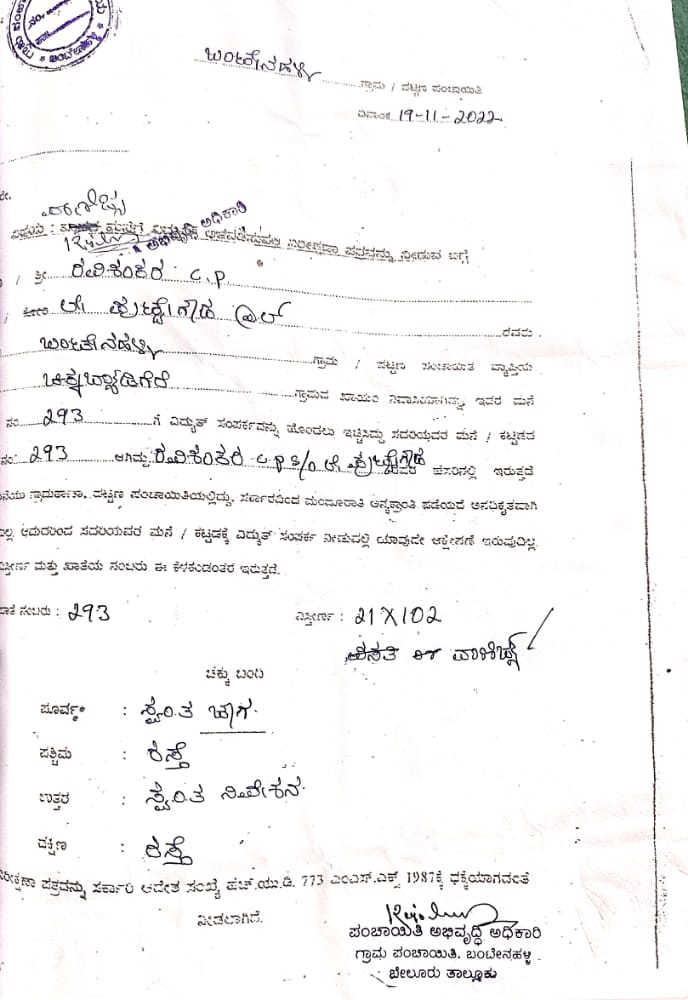 ಬಂಟೇನಹಳ್ಳಿ ಗ್ರಾಮ / ಪಟ್ಟಣ ಪಂಚಾಯಿತಿ
ದಿನಾಂಕ 19-11-2022
ವಾಣಿಜ್ಯ
ವಿಷಯ : ನಿರೀಕ್ಷಣಾ ಪತ್ರವನ್ನು ನೀಡುವ ಬಗ್ಗೆ
ಅಭಿವೃದ್ಧಿ ಅಧಿಕಾರಿ
/ ಶ್ರೀ ರವಿಶಂಕರ C.P
ಲೇ ಪುಟ್ಟೇಗೌಡ ರವರು
ಬಂಟೇನಹಳ್ಳಿ ಗ್ರಾಮ / ಪಟ್ಟಣ ಪಂಚಾಯಿತಿ ವ್ಯಾಪ್ತಿಯ
ಚಿಕ್ಕಬ್ಯಾಡಿಗೆರೆ ಗ್ರಾಮದ ಖಾಯಂ ನಿವಾಸಿಯಾಗಿದ್ದು ಇವರ ಮನೆ
ನಂ 293 ಗೆ ವಿದ್ಯುತ್ ಸಂಪರ್ಕವನ್ನು ಹೊಂದಲು ಇಚ್ಚಿಸಿದ್ದು ಸದರಿಯವರ ಮನೆ / ಕಟ್ಟಡದ
ನಂ: 293 ಆಗಿದ್ದು ರವಿಶಂಕರ C.P S/O ಲೇ ಪುಟ್ಟೇಗೌಡ ಹೆಸರಿನಲ್ಲಿ ಇರುತ್ತದೆ
ಪಟ್ಟಣ ಪಂಚಾಯಿತಿಯಲ್ಲಿದ್ದು, ಸರ್ಕಾರದಿಂದ ಮಂಜೂರಾತಿ ಅನ್ಯಕ್ರಾಂತಿ ಪಡೆಯದೆ ಅನಧಿಕೃತವಾಗಿ
ಆದುದರಿಂದ ಸದರಿಯವರ ಮನೆ / ಕಟ್ಟಡಕ್ಕೆ ವಿದ್ಯುತ್ ಸಂಪರ್ಕ ನೀಡುವಲ್ಲಿ ಯಾವುದೇ ಆಕ್ಷೇಪಣೆ ಇರುವುದಿಲ್ಲ
ಮತ್ತು ಖಾತೆಯ ನಂಬರು ಈ ಕೆಳಕಂಡಂತರ ಇರುತ್ತದೆ.
ನಂಬರು : 293 ವಿಸ್ತೀರ್ಣ : 21X102
ವಾಣಿಜ್ಯ
ಚಕ್ಕು ಬಂದಿ
ಪೂರ್ವಕ್ಕೆ : ಸ್ವಂತ ಜಾಗ
ಪಶ್ಚಿಮ : ರಸ್ತೆ
ಉತ್ತರ : ಸ್ವಂತ ನಿವೇಶನ
ದಕ್ಷಿಣ : ರಸ್ತೆ
ಪತ್ರವನ್ನು ಸರ್ಕಾರಿ ಆದೇಶ ಸಂಖ್ಯೆ ಹೆಚ್.ಯು.ಡಿ. 773 ಎಂ.ಎಸ್.ಎಕ್ಸ್ 1987ಕ್ಕೆ ಧಕ್ಕೆಯಾಗದಂತೆ
ನೀಡಲಾಗಿದೆ.
ಪಂಚಾಯಿತಿ ಅಭಿವೃದ್ಧಿ ಅಧಿಕಾರಿ
ಗ್ರಾಮ ಪಂಚಾಯಿತಿ, ಬಂಟೇನಹಳ್ಳಿ
ಬೇಲೂರು ತಾಲ್ಲೂಕು